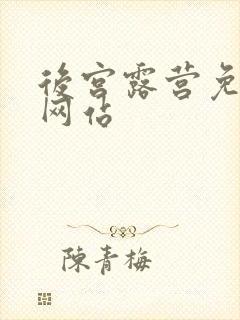 後宫露营免
网站
陳青梅